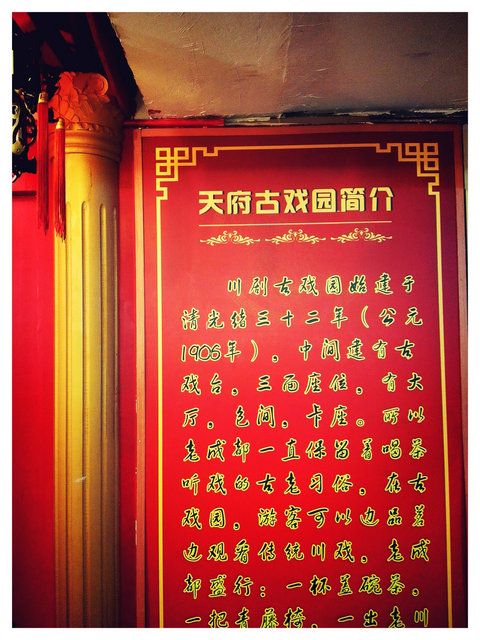 天府古戏园简介
川剧古戏园始建于
清光绪三十二年（公元
1906年），中间建有古
戏台，三面座位，有大
厅，包间，卡座。所以
老成都一直保留着喝茶
听戏的古老习俗，在古
戏园，游客可以边品茗
边观看传统川戏，老成
都盛行：一杯盖碗茶，
一把青藤椅，一出老川